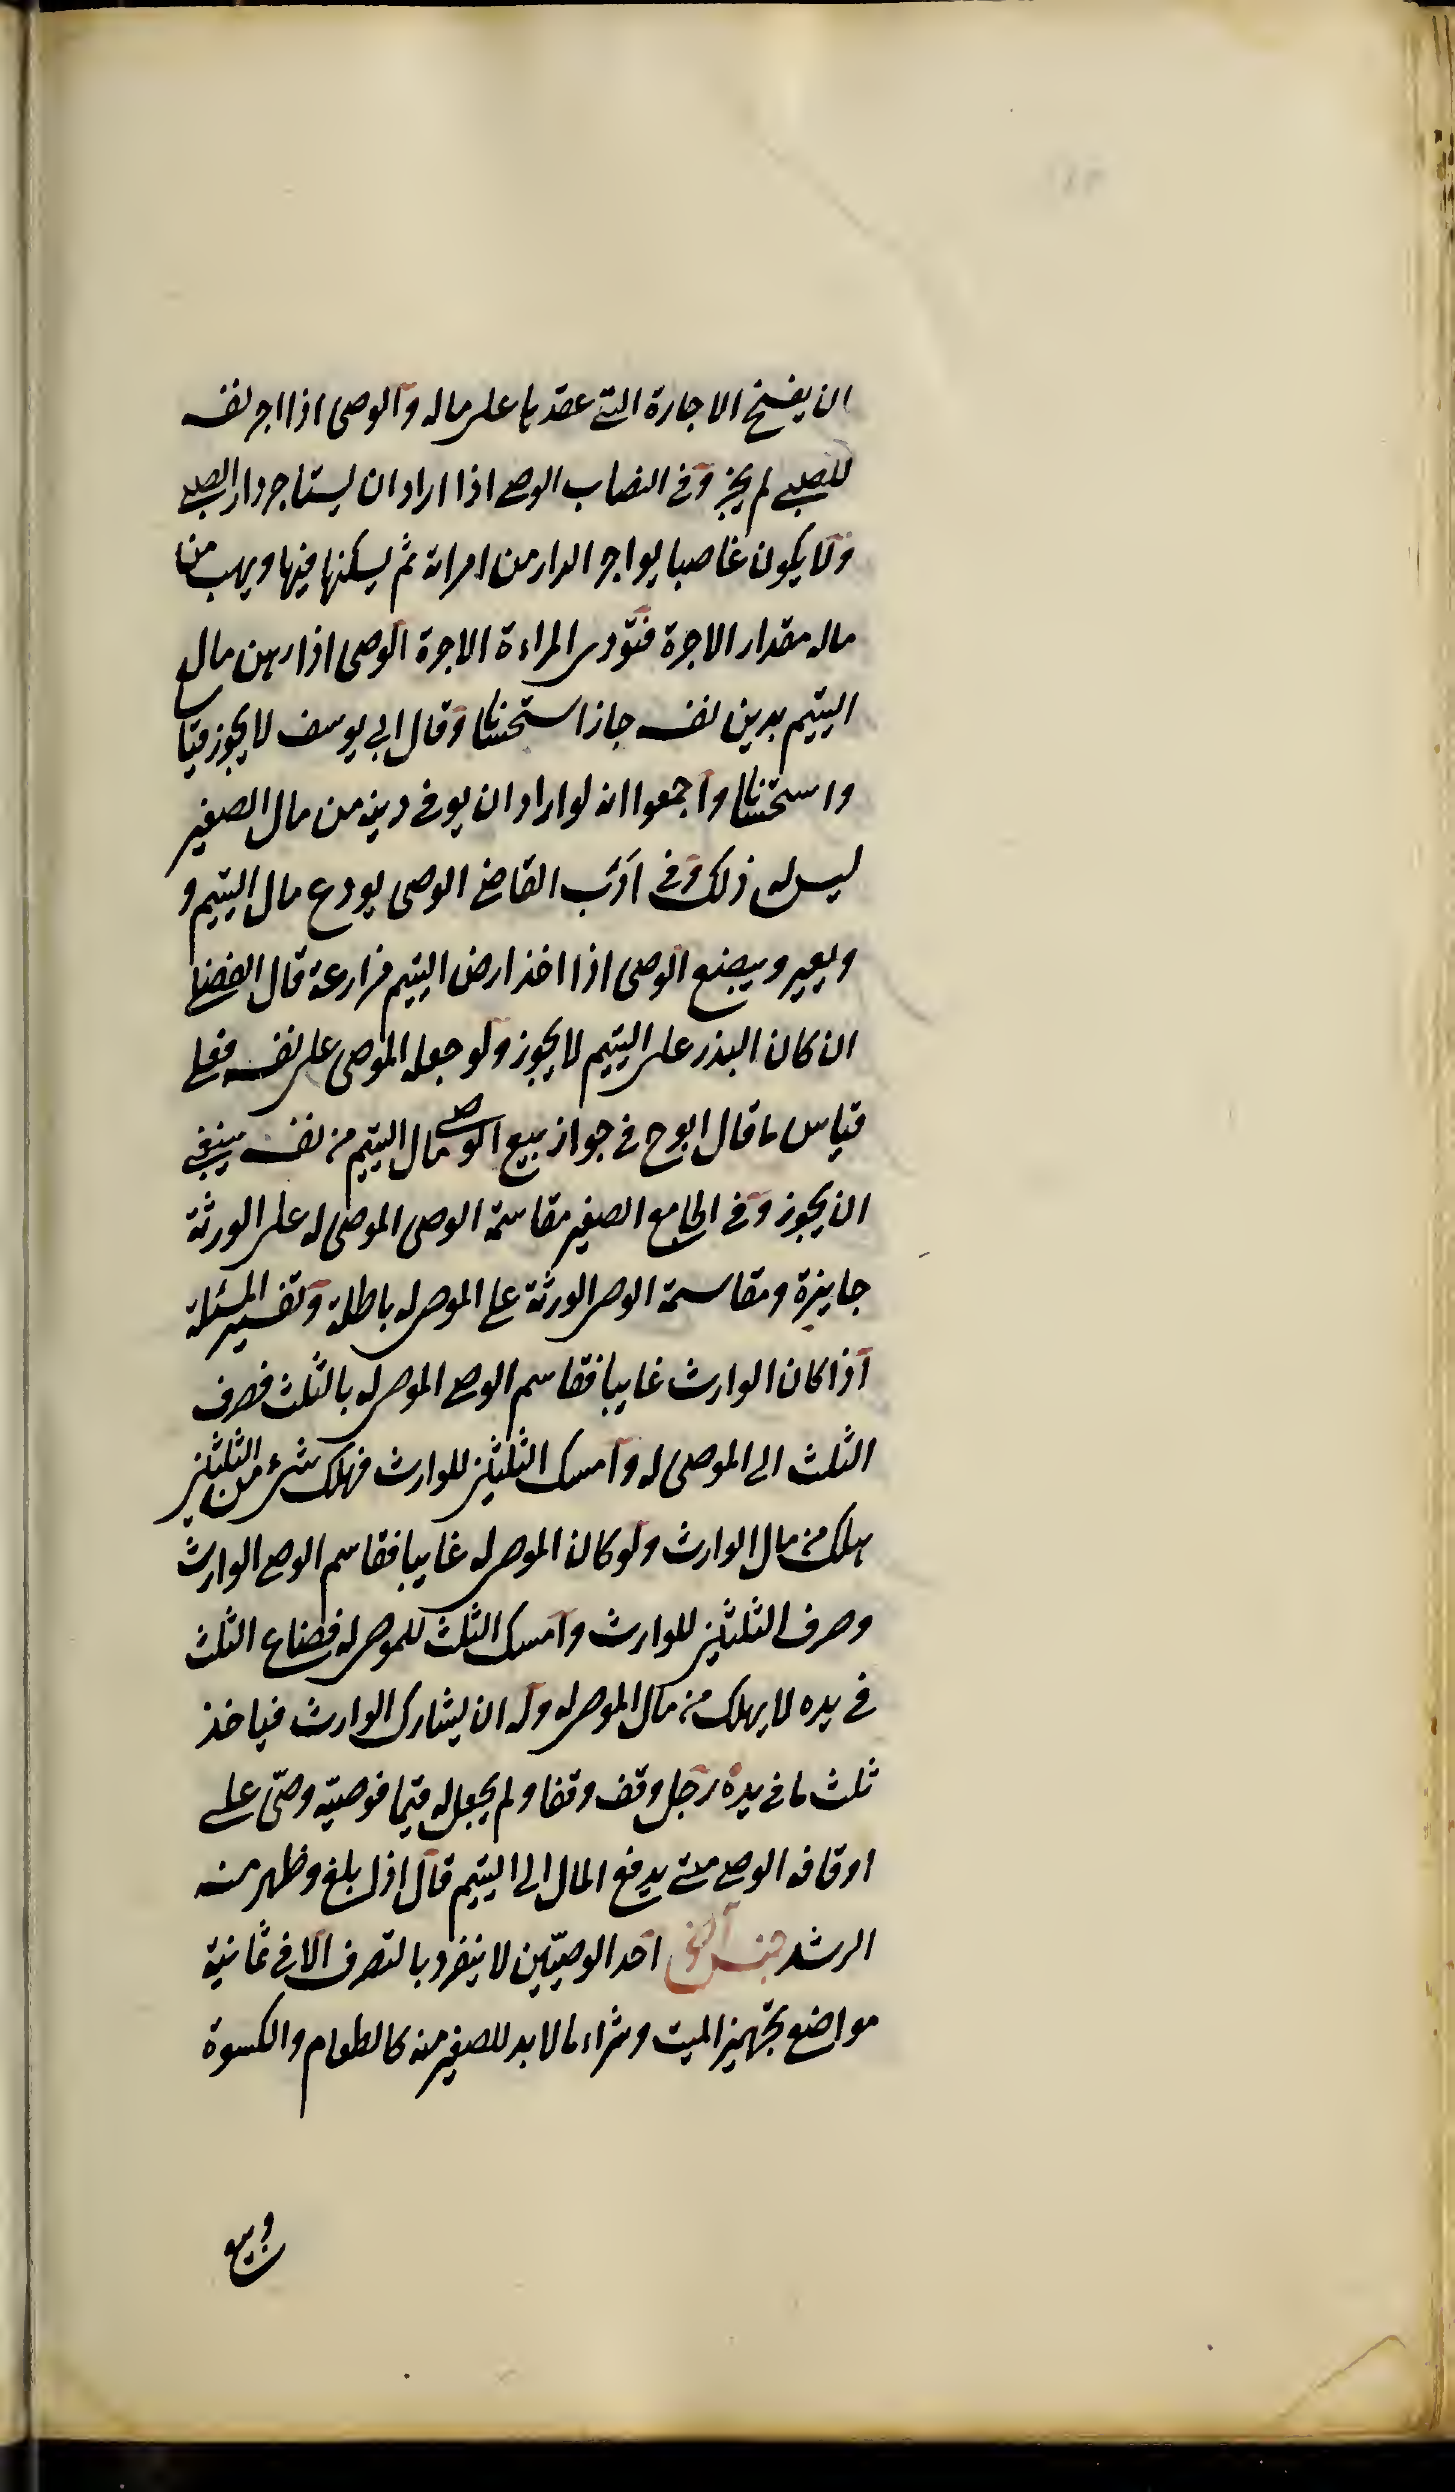 ان يفسخ الاجارة التي عقدها على ماله والوصى اذا اجر نفسه
للصبي لم يجز وفي النصاب الوصي اذا اراد ان يستاجر دار الصبي
ولا يكون غاصبا يواجر الدار من امراته ثم يسكنها فيها ويهب من
ماله مقدار الاجرة فتؤدى المراءة الاجرة الوصى اذا رهن مال
اليتيم بدين نفسه جاز استحسانا وقال ابي يوسف لا يجوز قياسا
واستحسانا واجمعوا انه لو اراد ان يوفي دينه من مال الصغير
ليس له ذلك وفي ادب القاضي الوصى يودع مال اليتيم و
ويعير ويبضع الوصى اذا اخذ ارض اليتيم مزارعة قال الفضلي
ان كان البذر على اليتيم لا يجوز ولو جعله الموصى على نفسه فعلى
قياس ما قال ابوح في جواز بيع الوصي مال اليتيم من نفسه ينبغي
ان يجوز وفي الجامع الصغير مقاسمة الوصى الموصى له على الورثة
جايزة ومقاسمة الوصى الورثة على الموصى له باطلة وتفسير المسئلة
اذا كان الوارث غايبا فقاسم الوصي الموصى له بالثلث فصرف
الثلث الى الموصى له وامسك الثلثين للوارث فهلك شئ من الثلثين
يهلك من مال الوارث ولو كان الموصى له غايبا فقاسم الوصي الوارث
وصرف الثلثين للوارث وامسك الثلث للموصى له فضاع الثلث
في يده لا يهلك من مال الموصى له وله ان يشارك الوارث فياخذ
ثلث ما في يده رجل وقف وقفا ولم يجعل له قيما فوصيه وصى على
اوقافه الوصي متى يدفع المال الى اليتيم قال اذا بلغ وظهر منه
الرشد جنس آخر احد الوصيّين لا ينفرد بالتصرف الا في ثمانية
مواضع تجهيز الميت وشراء ما لا بد للصغير منه كالطعام والكسوة
وبيع